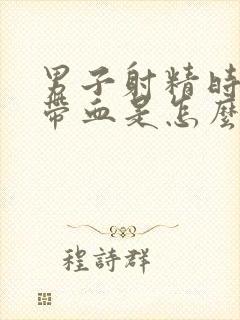 男子射精時
帶血是怎麼
程詩群